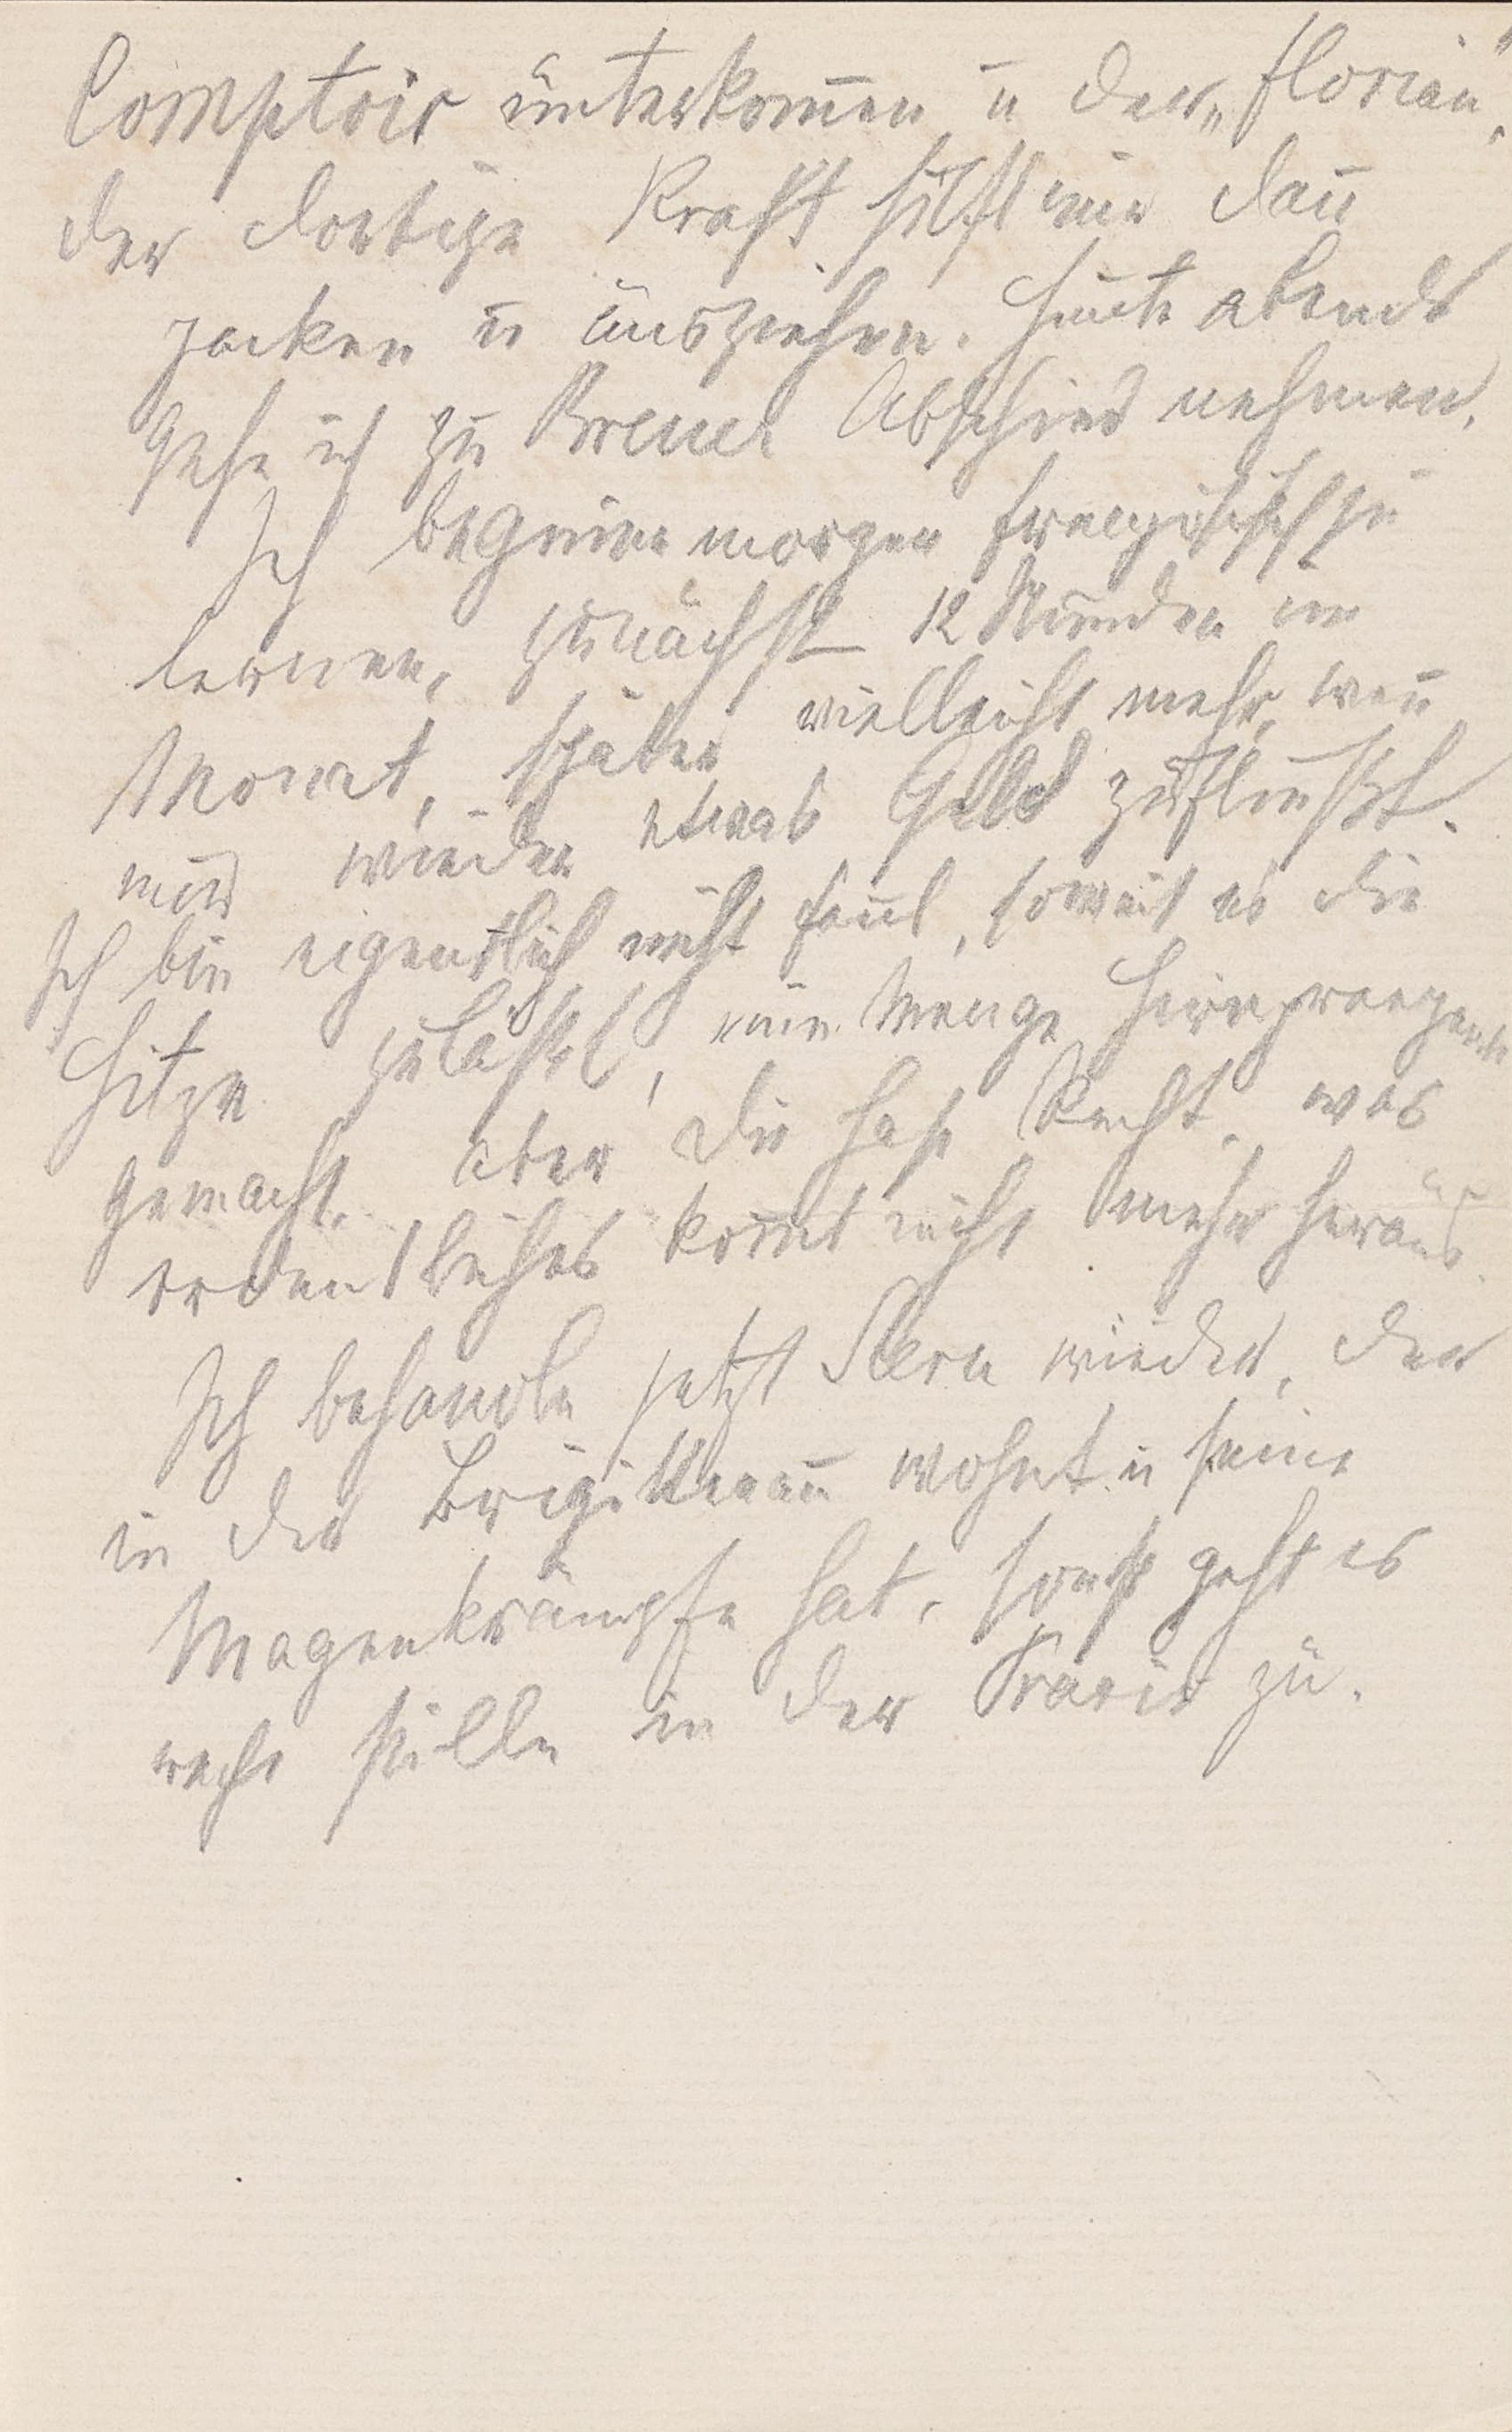 Comptoir unterkom̄en u der „Florian“,
der dortige Kraft hilft mir dan̄
packen u ausziehen. Heute abends
gehe ich zu Breuer Abschied nehmen.
Ich beginne morgen französisch zu
lernen, zunächst 12 Stunden im
Monat, später vielleicht mehr, wen̄
mir wieder etwas Geld zufließt.
Ich bin eigentlich nicht faul, soweit es die
Hitze zuläßt, eine Menge
gemacht. aber Du hast Recht, was
ordentliches kom̄t nicht mehr heraus.
Ich behandle jetzt Stern wieder, der
in der Brigittenau wohnt u seine
Magenkrämpfe hat, sonst geht es
recht stille in der Praxis zu.